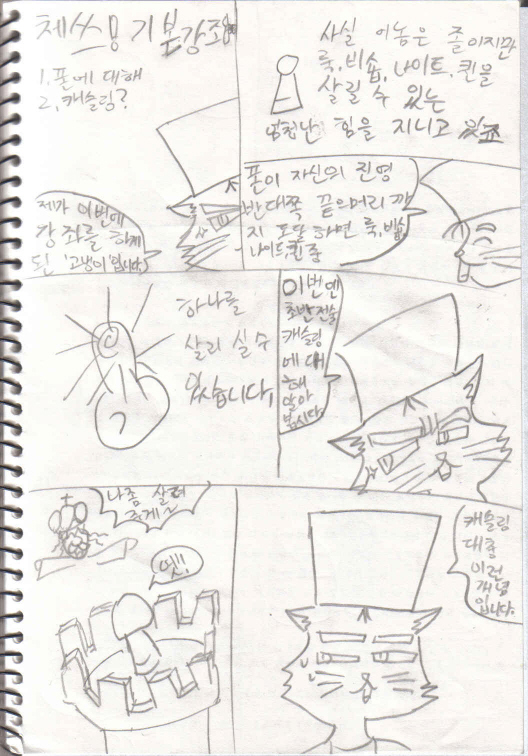 체쓰! 기본강좌
1. 폰에 대해
2. 캐슬링?
제가 이번에
강좌를 하게
된 '고냥이'입니다.
사실 이놈은 졸이지만
룩, 비숍, 나이트, 퀸을
살릴 수 있는
엄청난 힘을 지니고 있죠
폰이 자신의 진영
반대쪽 끝의머리 까
지 도달하면 룩, 비숍
나이트, 퀸 중
하나를
살리 실 수
있습니다.
이번엔
초반전술
캐슬링
에 대
해
알아
봅시다.
나좀 살려
줘게
옛!!
캐슬링
대충
이런
개념
입니다.